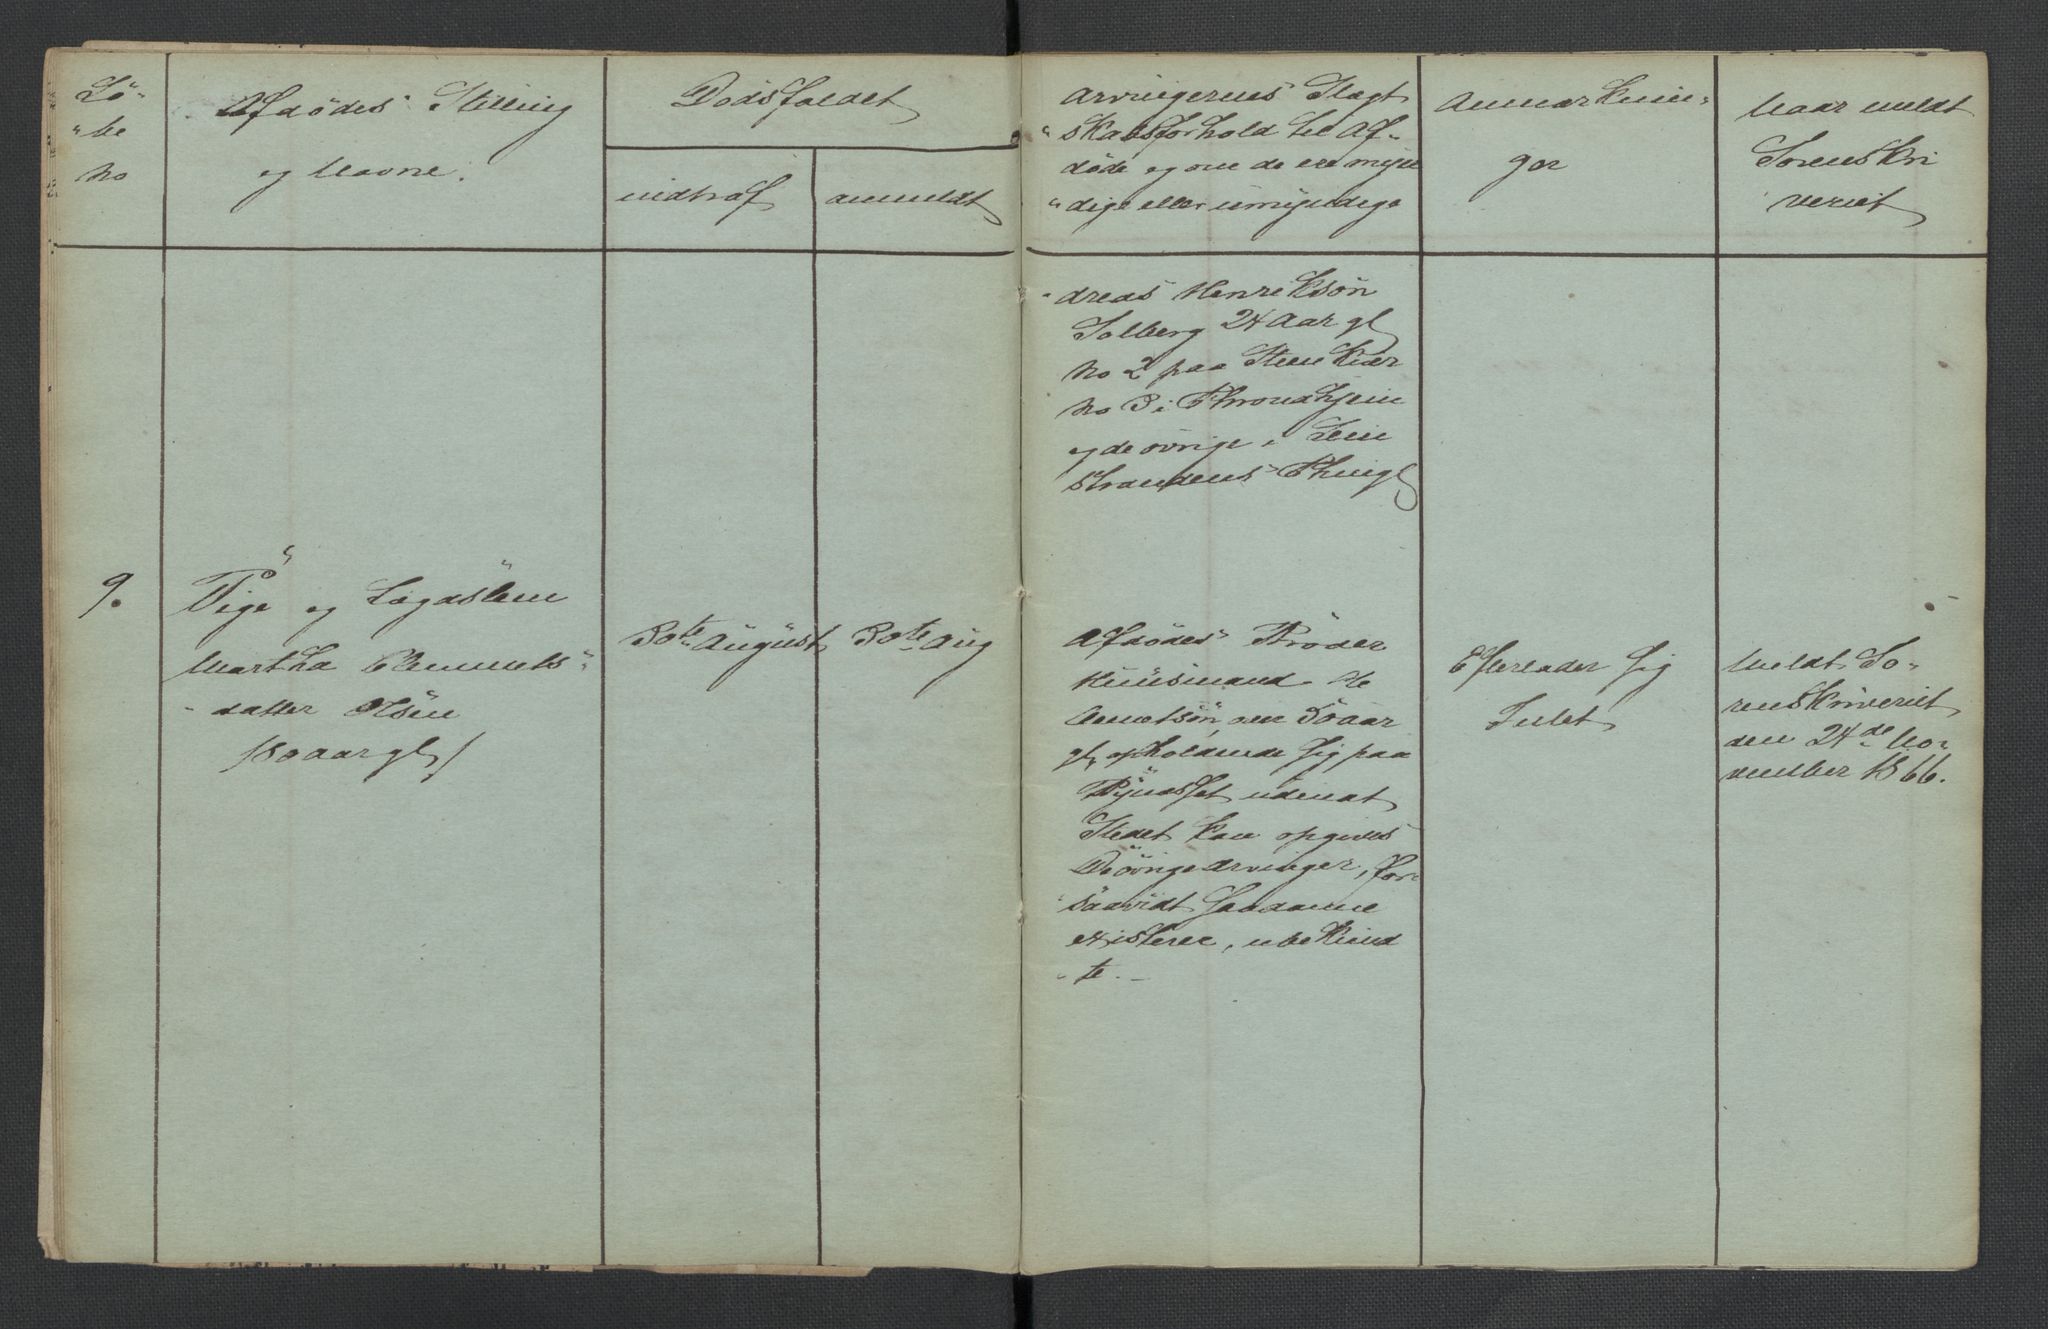 Lö-
"be
No
Afdödes Stilling
og Navne.
Dödsfaldet
indtraf
anmeldt
Arvingernes Slægt
"skabsforhold til Af-
döde og om de ere myn
"dige eller umyndige
Anmærknin-
ger
Naar meldt
Sorenskri
veriet
"dreas Henriksön
Solberg 24 Aar gl
No 2 paa Steenkiær
No 3 i Throndhjem
og de övrige i Lein
strandens Thingl
9.
Pige og Lægdslem
Martha Clemmets"
"datter Ölsen
/80 aar gl/
30te August
30te Aug
Afdödes Bröder
Huusmand
om 50 aar
gl, opholdende sig paa
Bynæsset uden at
Stedet kan opgives
De övrige Arvinger, for-
"saavidt saadanne
existerer, ubekiend
"te. -
Efterlader sig
Intet
Meldt So-
renskriveriet
den 24de No-
vember 1866.